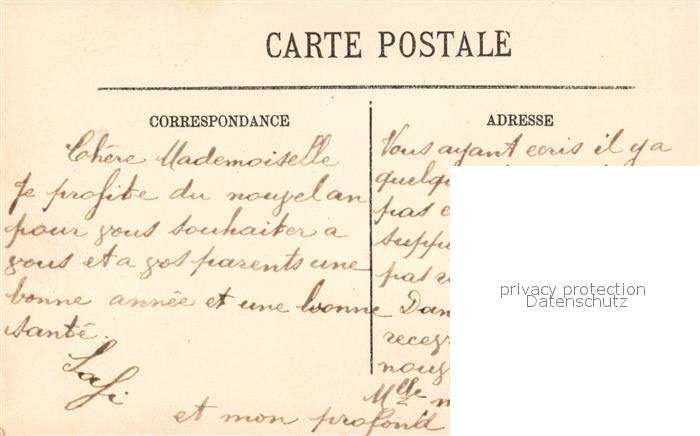 CARTE POSTALE
CORRESPONDANCE
Chère Mademoiselle
Je profite du nouvel an
pour vous souhaiter a
vous et a vos parents une
bonne année et une bonne
santé.
ADRESSE
Vous ayant ecris il y a
quelqu
pas
supp
pas
Dan
recev
nouv
Mlle
et mon profond
privacy protection
Datenschutz